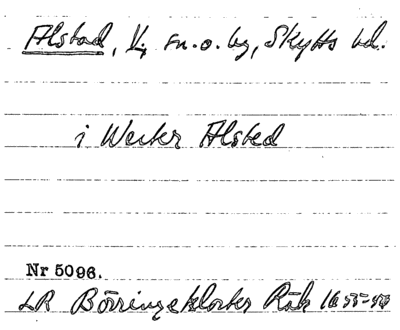 Alstad, V, sn. o. by, Skytts hd.
i Wester Alsted
Nr 5096.
LR Börringekloster Räk 1655-56